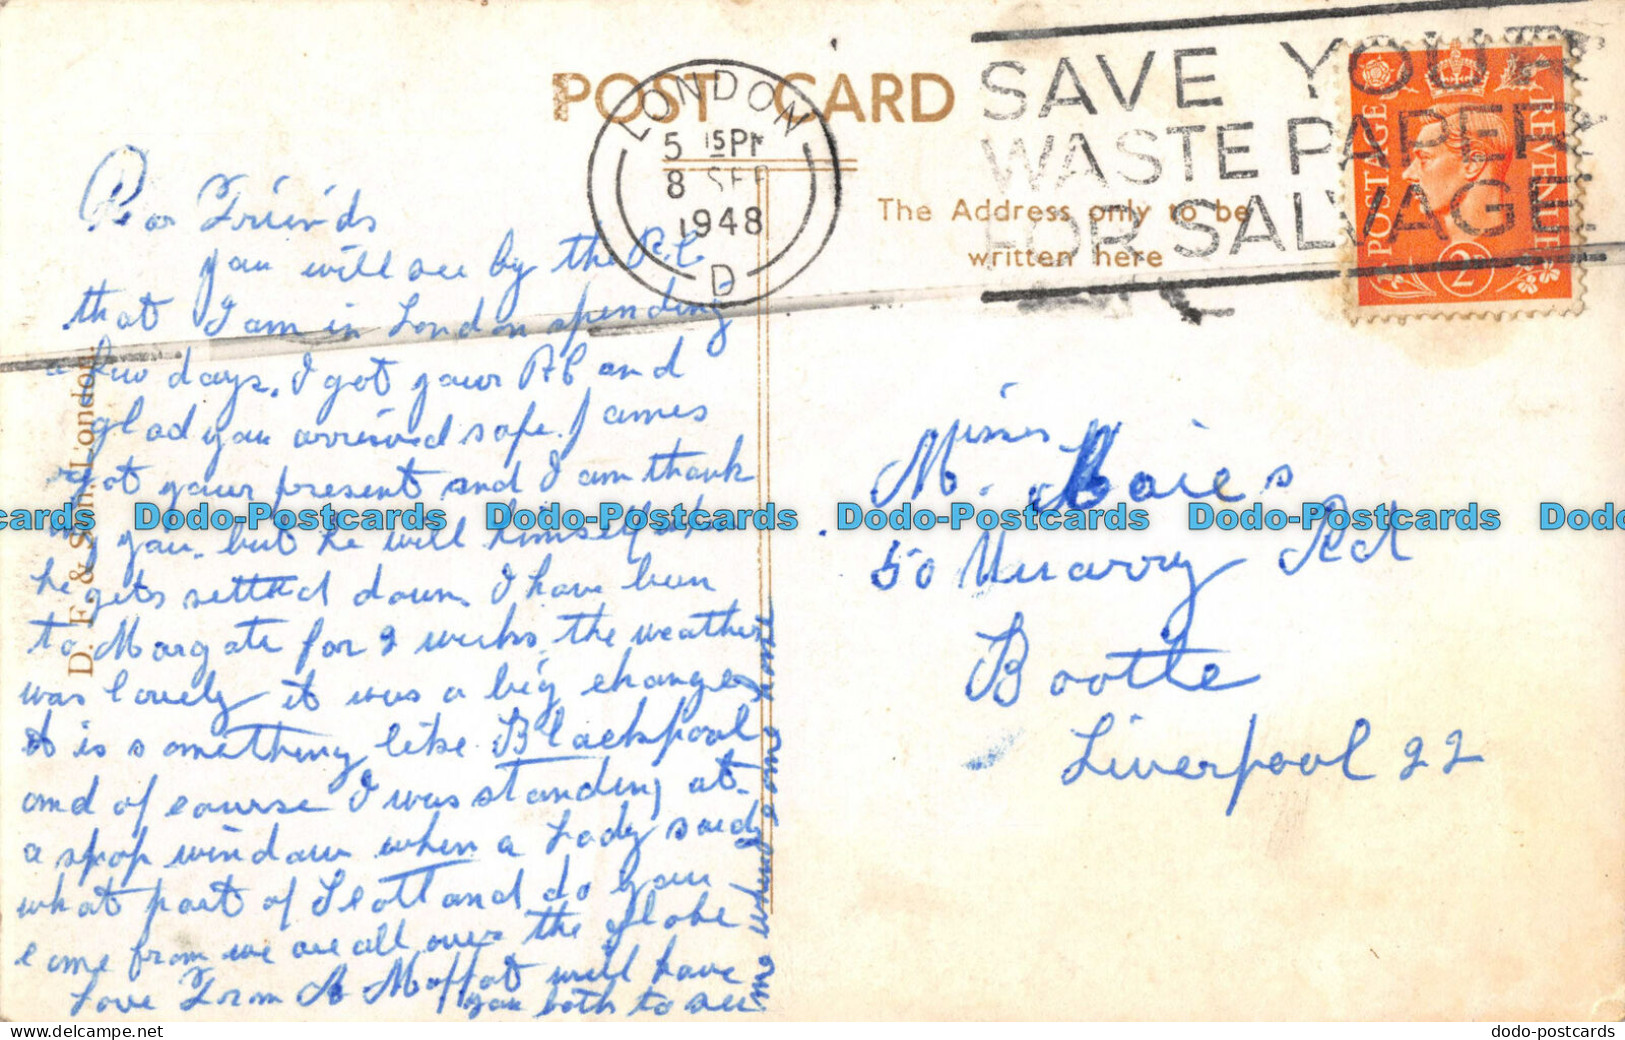 POST CARD
LONDON
5 15 PM
8 SEP
1948
D
SAVE YOUR
WASTE PAPER
FOR SALVAGE
POSTAGE REVENUE
2D
The Address only to be
written here
D. F. & Son. London.
Dear Friends
you will see by the P.C
that I am in London spending
a few days. I got your P.C and
glad you arrived safe. James
got your present and I am thank
ing you. but he will himself when
he gets settled down. I have been
to Margate for 2 weeks. the weather
was lovely it was a big change
it is something like Blackpool
and of course I was standing at
a shop window when a Lady said
what part of Scotland do you
come from we are all over the globe
Love From A Moffat will have
you both to see
me when I come home
Misses
M. Maies
50 Quarry Rd
Bootle
Liverpool 22
Dodo-Postcards Dodo-Postcards Dodo-Postcards Dodo-Postcards
www.delcampe.net
dodo-postcards